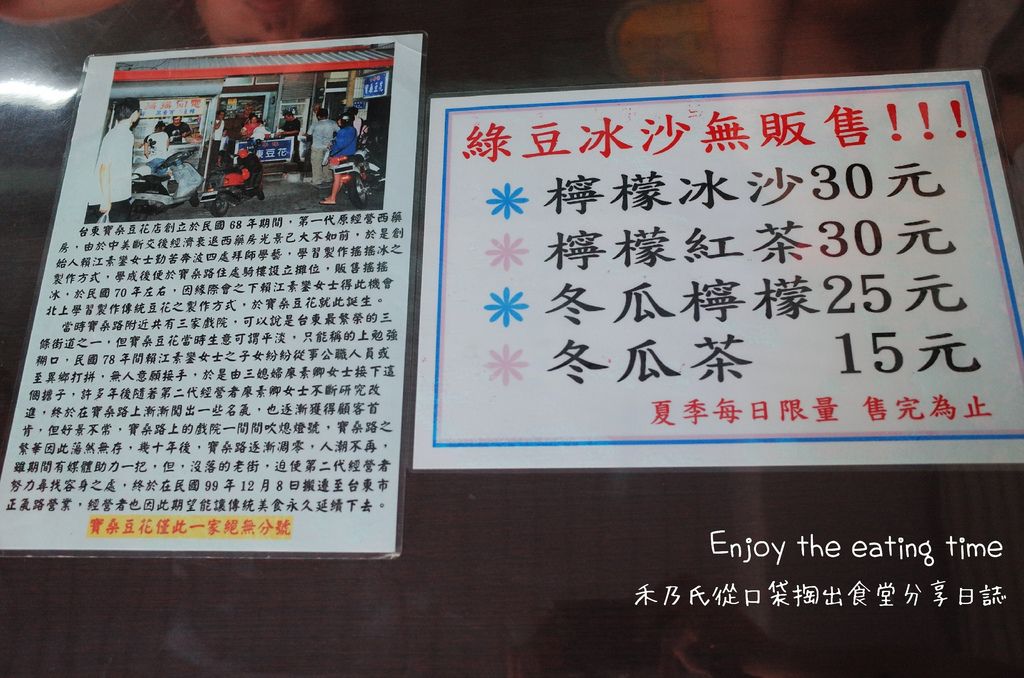 台東寶桑豆花店創立於民國68年期間，第一代原經營西藥
房，由於中美斷交後經濟衰退西藥房光景已大不如前，於是創
始人賴江素鑾女士勤苦奔波四處拜師學藝，學習製作搖搖冰之
製作方式，學成後便於寶桑路住處騎樓設立攤位，販售搖搖
冰，於民國70年左右，因緣際會之下賴江素鑾女士得此機會
北上學習製作傳統豆花之製作方式，於寶桑豆花就此誕生。
當時寶桑路附近共有三家戲院，可以說是台東最繁榮的三
條街道之一，但寶桑豆花當時生意可謂平淡，只能稱的上勉強
糊口，民國78年間賴江素鑾女士之子女紛紛從事公職人員或
至異鄉打拼，無人意願接手，於是由三媳婦廖素卿女士接下這
個擔子，許多年後隨著第二代經營者廖素卿女士不斷研究改
進，終於在寶桑路上漸漸闖出一些名氣，也逐漸獲得顧客首
肯，但好景不常，寶桑路上的戲院一間間吹熄燈號，寶桑路之
繁華因此蕩然無存，幾十年後，寶桑路逐漸凋零，人潮不再，
雖期間有媒體助力一把，但，沒落的老街，迫使第二代經營者
努力尋找容身之處，終於在民國99年12月8日搬遷至台東市
正氣路營業，經營者也因此期望能讓傳統美食永久延續下去。
寶桑豆花僅此一家絕無分號
綠豆冰沙無販售!!!
檸檬冰沙30元
檸檬紅茶30元
冬瓜檸檬25元
冬瓜茶 15元
夏季每日限量 售完為止
Enjoy the eating time
禾乃氏從口袋掏出食堂分享日誌